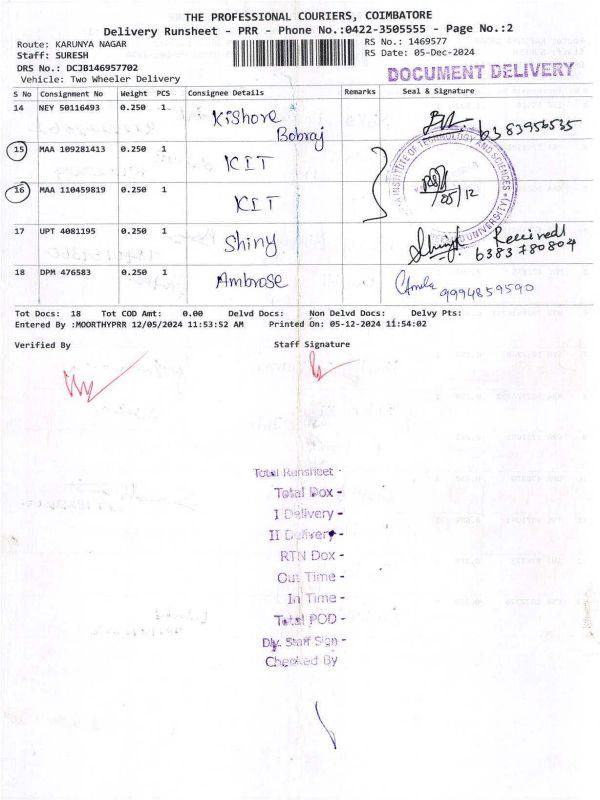 THE PROFESSIONAL COURIERS, COIMBATORE
Delivery Runsheet - PRR - Phone No.:0422-3505555 - Page No.:2
Route: KARUNYA NAGAR RS No.: 1469577
Staff: SURESH RS Date: 05-Dec-2024
DRS No.: DCJB146957702
Vehicle: Two Wheeler Delivery DOCUMENT DELIVERY
S No Consignment No Weight PCS Consignee Details Remarks Seal & Signature
14 NEY 50116493 0.250 1 Kishore Bobraj 6383956535
15 MAA 109281413 0.250 1 KIT
16 MAA 110459819 0.250 1 KIT
INSTITUTE OF TECHNOLOGY AND SCIENCES
17 UPT 4081195 0.250 1 Shiny Received
6383780804
18 DPM 476583 0.250 1 Ambrose 9994859590
Tot Docs: 18 Tot COD Amt: 0.00 Delvd Docs: Non Delvd Docs: Delvy Pts:
Entered By :MOORTHYPRR 12/05/2024 11:53:52 AM Printed On: 05-12-2024 11:54:02
Verified By Staff Signature
Total Runsheet -
Total Dox -
I Delivery -
II Delivery -
RTN Dox -
Out Time -
In Time -
Total POD -
Dly. Staff Sign -
Checked By